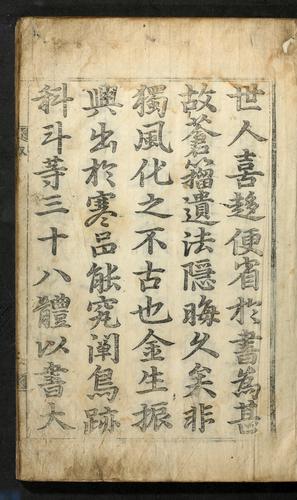 世人喜趍便賔於書為甚
故蒼籕遺法隱晦久矣非
獨風化之不古也金生振
興出於寒呂能究闡鳥跡
科斗等三十八體以書大